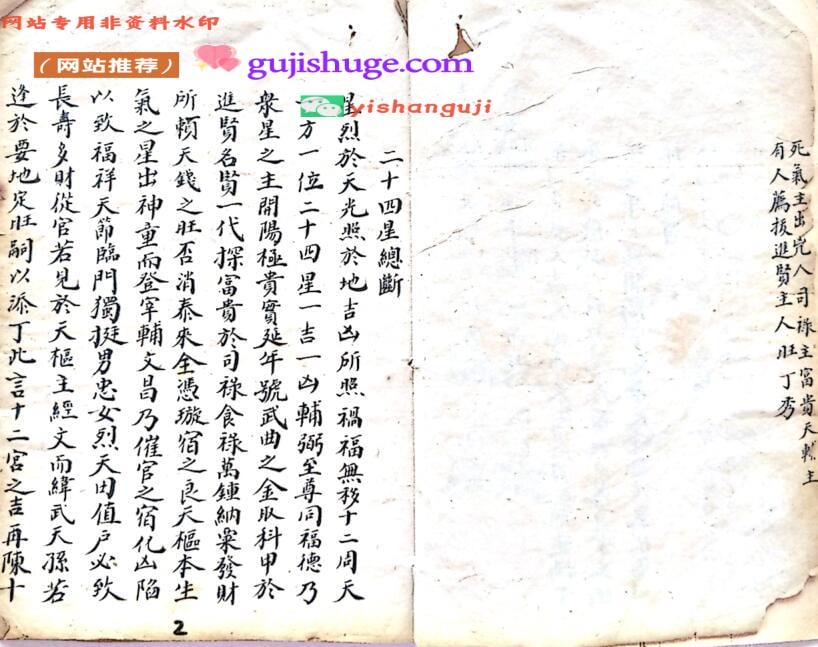 网站专用非资料水印
（网站推荐）
gujishuge.com
yishanguji
死氣主出兇人司祿主富貴天輔主
有人薦拔進賢主人旺丁秀
二十四星總斷
星烈於天光照於地吉凶所照禍福無移十二周天
一方一位二十四星一吉一凶輔弼至尊同福德乃
衆星之主開陽極貴實延年號武曲之金取科甲於
進賢名賢一代探富貴於司祿食祿萬鍾納粟發財
所賴天錢之旺否消泰來全憑璇宿之良天樞本生
氣之星出神童而登宰輔文昌乃催官之宿化凶陷
以致福祥天節臨門獨挺男忠女烈天田值戶必致
長壽多財從官若見於天樞主經文而緯武天孫若
逢於要地定旺嗣以添丁此言十二宮之吉再陳十
2